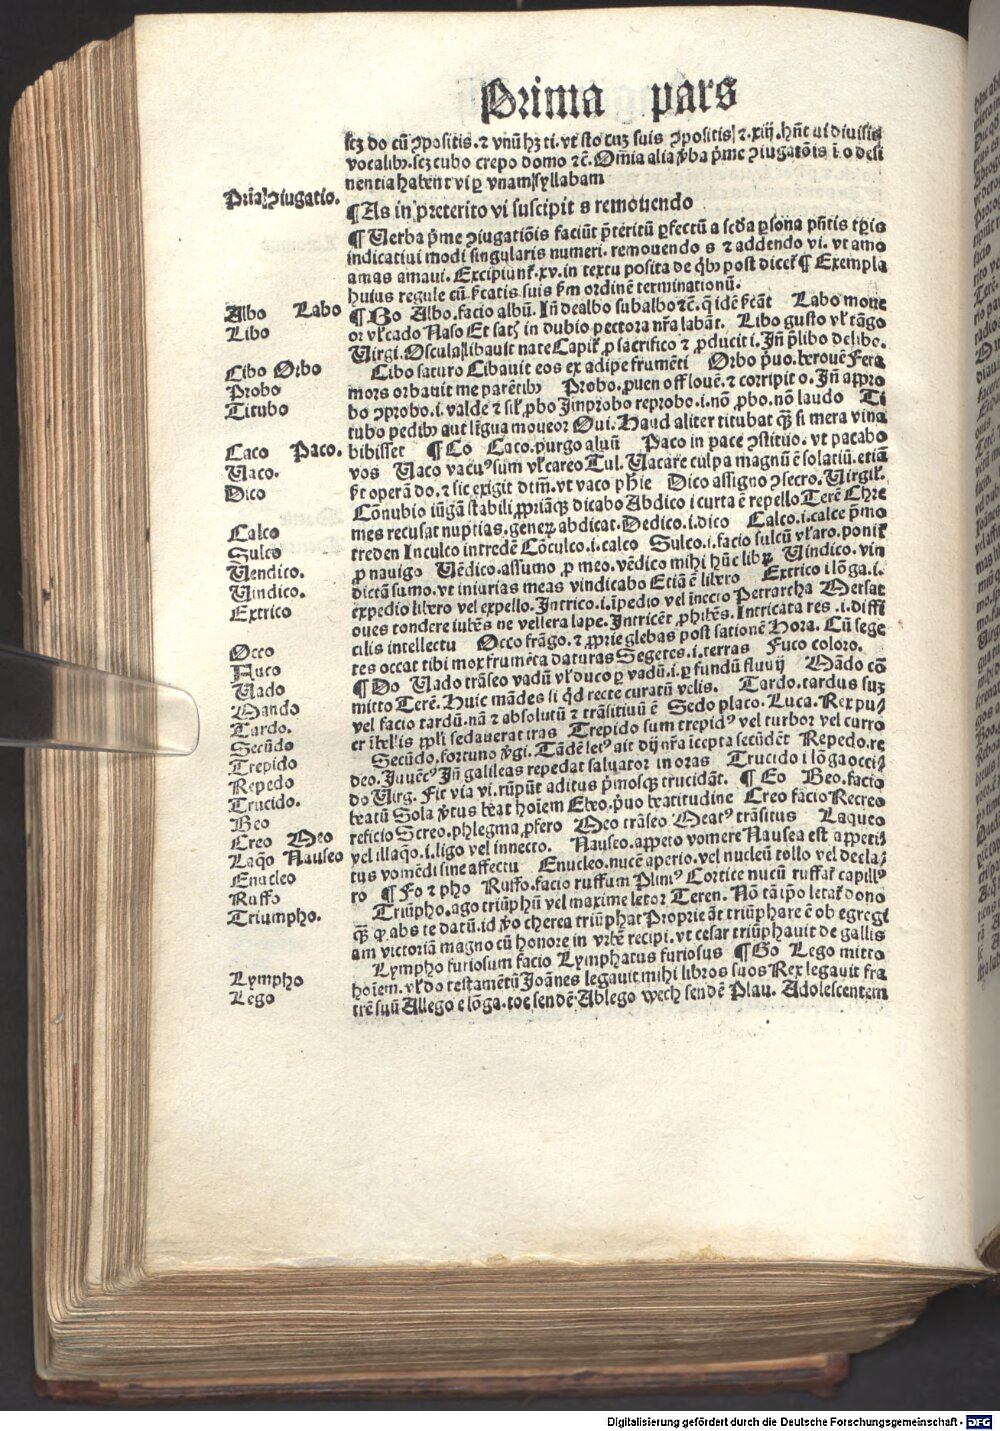 Prima pars
scʒ do cū ꝯpositis. ⁊ vnū hʒ ti. vt sto cuʒ suis ꝯpositis ⁊ .xiij. hn̄t ui diuisis
vocalibꝰ. scʒ cubo crepo domo ⁊c̄. Om̄ia alia v̄ba p̄me ꝯiugatōis ī .o desi
nentia habent vi ꝑ vnam syllabam
Pn̄a ꝯiugatio.
¶ As in preterito vi suscipit s remouendo
¶ Verba p̄me ꝯiugatiōis faciūt p̄teritū ꝑfectū a scd̄a ꝑsona pn̄tis tꝑis
indicatiui modi singularis numeri. remouendo s ⁊ addendo vi. vt amo
amas amaui. Excipiunt᷑ .xv. in textu posita de qibꝰ post dicet᷑ ¶ Exempla
huius regule cū sc̄atis suis scd̄m ordinē terminationū.
Albo Labo
¶ Bo Albo. facio albū. Jn̄ dealbo subalbo ⁊c̄. q̄ idē sc̄ant Labo moue
Libo
or vl̓ cado Naso Et satꝭ in dubio pectora nr̄a labāt. Libo gusto vl̓ tāgo
Virgi. Oscula libauit nate Capit᷑ ꝓ sacrifico ⁊ ꝓducit i. Jn̄ p̄libo delibo.
Cibo Orbo
Cibo saturo Cibauit eos ex adipe frumēti Orbo p̄uo. br̄ouēFera
Probo
mors orbauit me parētibꝰ Probo. ꝓuen off louē. ⁊ corripit o. Jn̄ aꝓpro
Titubo
bo ꝯprobo .i. valde ⁊ sil̓ ꝓbo Jmprobo reprobo .i. nō ꝓbo. nō laudo Ti
tubo pedibꝰ aut līgua moueor Oui. Haud aliter titubat qͣ̄ si mera vina
Caco Paco.
bibisset ¶ Co Caco. purgo aluū Paco in pace ꝯstituo. vt pacabo
Vaco.
vos Vaco vacuꝰ sum vl̓ careo Tul. Vacare culpa magnū ē solatiū. etiā
Dico
sc̄t operā do. ⁊ sic exigit dtm̄. vt vaco ph̄ie Dico assigno ꝯsecro. Virgil᷑.
Cōnubio iūgā stabili ꝓpriāqꝫ dicabo Abdico i curta ē repello Terē Chre
Calco
mes recusat nuptias. generꝫ abdicat. Dedico .i. dico Calco .i. calce p̄mo
Sulco
treden Inculco intredē Cōculco .i. calco Sulco .i. facio sulcū vl̓ aro. ponit᷑
Vendico.
ꝓ nauigo Vēdico. assumo ꝓ meo. vēdico mihi hūc librꝫ Vindico. vin
Vindico.
dictā sumo. vt iniurias meas vindicabo Etiā ē libero Extrico i lōga .i.
Extrico
expedio libero vel expello. Intrico .i. īpedio vel īnecto Petrarcha Versat
oues tondere iubēs ne vellera lape. Intricēt ꝓhibēs. Intricata res .i. diffi
Occo
cilis intellectu Occo frāgo. ⁊ ꝓprie glebas post sationē Hora. Cū sege
Fuco
tes occat tibi mox frumēta daturas Segetes .i. terras Fuco coloro.
Vado
¶ Do Vado trāseo vadū vl̓ duco ꝑ vadū .i. ꝑ fundū fluuij Mādo cō
Mando
mitto Terē. Huic mādes si qd̓ recte curatū velis. Tardo. tardus suʒ
Tardo.
vel facio tardū. nā ⁊ absolutū ⁊ trāsitiuū ē Sedo placo. Luca. Rex pu
Secūdo
er ībel̓lis ꝓpl̓i sedauerat iras Trepido sum trepidꝰ vel turbor vel curro
Trepido
Secūdo. fortuno v̓gi. Tādē letꝰ ait dij nr̄a īcepta secūdēt Repedo. re
Repedo
deo. Juuēcꝰ Jn̄ galileas repedat saluator in oras Trucido i lōga occi
Trucido.
do Virg. Fit via vi. rūpūt aditus p̄mosqꝫ trucidāt. ¶ Eo Beo. facio
Beo
beatū Sola v̓tus beat hoīem Ebeo. p̄uo beatitudine Creo facio Recreo
Creo Meo
reficio Screo. phlegma ꝓfero Meo trāseo Meatꝰ trāsitus Laqueo
Laq̄o Nauseo
vel illaq̄o .i. ligo vel innecto. Nauseo. appeto vomere Nausea est appeti
Enucleo
tus vomēdi sine affectu Enucleo. nucē aperio. vel nucleū tollo vel decla
Ruffo
ro ¶ Fo ⁊ pho Ruffo. facio ruffum Pliniꝰ Cortice nucū ruffat᷑ capillꝰ
Triumpho.
Triūpho. ago triūphū vel maxime letor Teren. Nō tā ip̄o letat᷑ dono
qͣ̄ ꝙ abs te datū. id v̓o cherea triūphat Proprie āt triūphare ē ob egregi
am victoriā magno cū honore in vrbē recipi. vt cesar triūphauit de gallis
Lympho
Lympho furiosum facio Lymphatus furiosus ¶ Go Lego mitto
Lego
hoīem. vl̓ do testamētū Joānes legauit mihi libros suos Rex legauit fra
trē suū Allego e lōga. toc sendē Ablego wech sendē Plau. Adolescentem
Digitalisierung gefördert durch die Deutsche Forschungsgemeinschaft - DFG